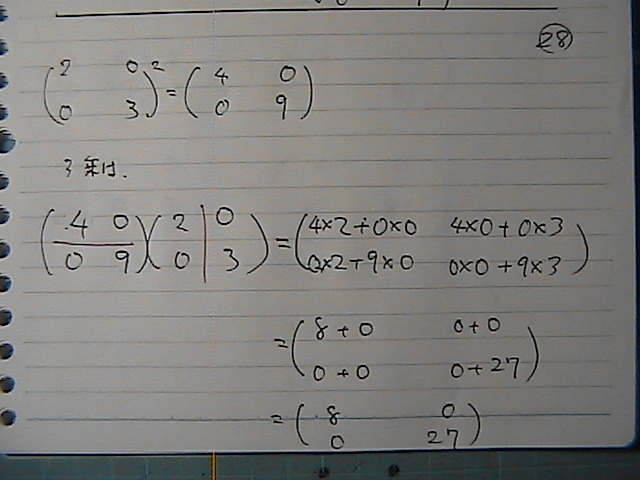 28
(2 0
0 3)² = (4 0
0 9)
3乗は.
(4 0
0 9)(2 0
0 3) = (4×2+0×0 4×0+0×3
0×2+9×0 0×0+9×3)
= (8+0 0+0
0+0 0+27)
= (8 0
0 27)